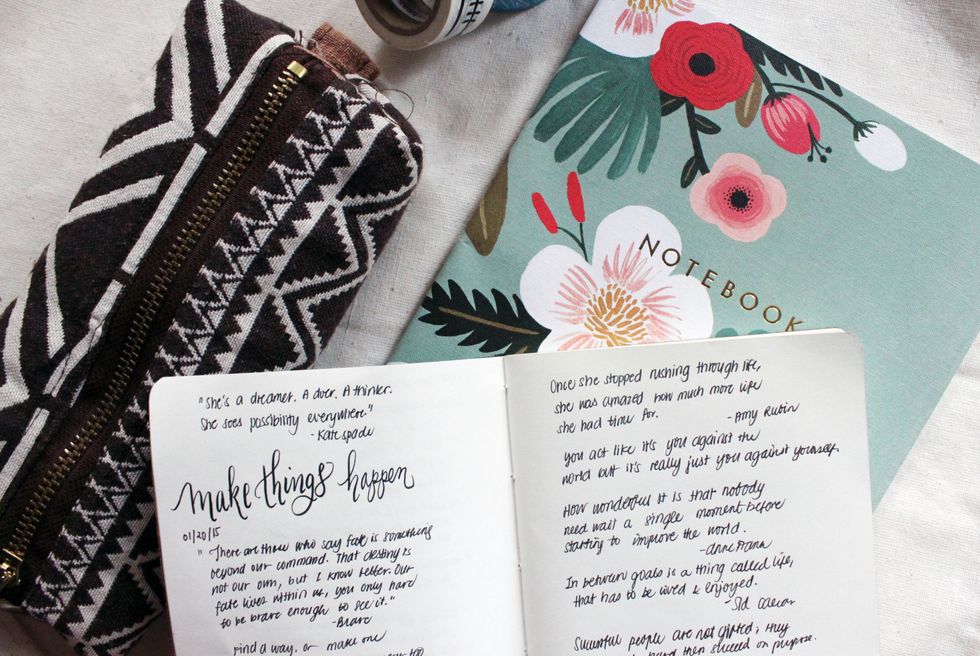 NOTEBOOK
"She's a dreamer. A doer. A thinker.
She sees possibility everywhere."
- Kate Spade
make things happen
01/20/15
"There are those who say fate is something
beyond our command. That destiny is
not our own, but I know better. Our
fate lives within us, you only have
to be brave enough to see it."
- Brave
Find a way, or make one
Once she stopped rushing through life,
she was amazed how much more life
she had time for.
- Amy Rubin
you act like it's you against the
world but it's really just you against yourself.
How wonderful it is that nobody
need wait a single moment before
starting to improve the world.
- anne Frank
In between goals is a thing called life,
that has to be lived & enjoyed.
- Sid Caesar
Successful people are not gifted; they
hard then succeed on purpose.